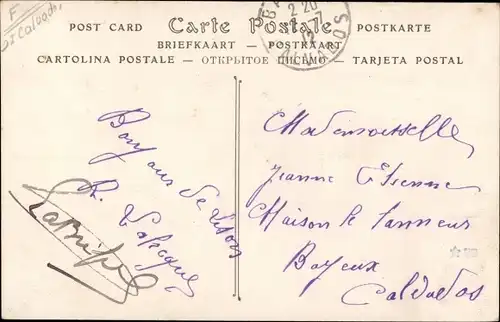 F
Calvados
POST CARD
Carte Postale
POSTKARTE
BRIEFKAART - POSTKAART
CARTOLINA POSTALE - ОТКРЫТОЕ ПИСЬМО - TARJETA POSTAL
2·20
CALVADOS
Bonjour de Lison
R.
Mademoiselle
Jeanne Etienne
Maison le tanneur
Bayeux
Calvados